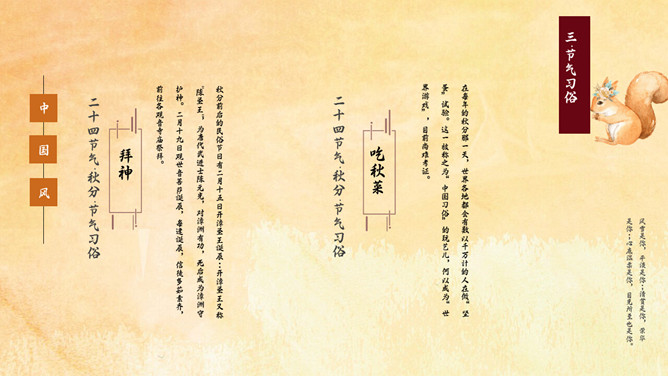 三·节气习俗
风雪是你，平淡是你；清贫是你，荣华
是你；心底温柔是你，目光所至也是你。
在每年的秋分那一天，世界各地都会有数以千万计的人在做“竖
蛋”试验。这一被称之为“中国习俗”的玩艺儿，何以成为“世
界游戏”，目前尚难考证。
吃秋菜
二十四节气·秋分·节气习俗
秋分前后的民俗节日有二月十五日开漳圣王诞辰：开漳圣王又称
“陈圣王”，为唐代武进士陈元光，对漳州有功，死后成为漳州守
护神。二月十九日观世音菩萨诞辰，每逢诞辰，信徒多茹素斋，
前往各观音寺庙祭拜。
拜神
二十四节气·秋分·节气习俗
中
国
风